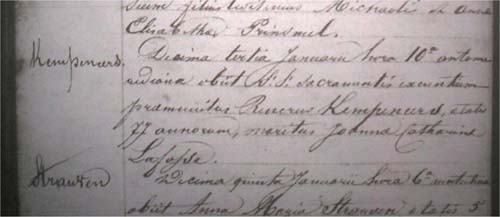 suum filius legitimus Michaelis et Anna
Elisabetha Prinsmel.
Kempeneers. Decima tertia Januarii hora 10ª antome
ridiana obiit S.S. Sacramentis exeuntium
præmunitus Renerus Kempeneers, ætatis
77 annorum, maritus Joanna Catharina
Lafosse.
Strauven Decima quinta Januarii hora 6ª matutina
obiit Anna Maria Strauven ætatis 5